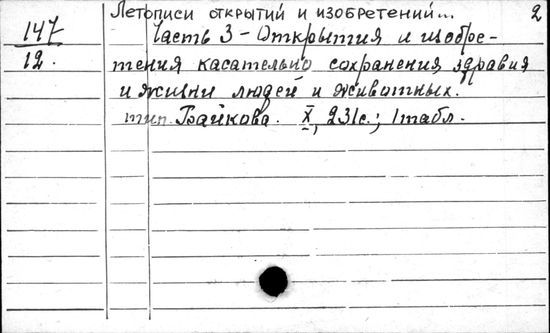 Летописи открытий и изобретений... 2
147
12.
Часть 3 - Открытия и изобре-
тения касательно сохранения здравия
и жизни людей и животных.
тип. Байкова. X, 231с.; 1табл.